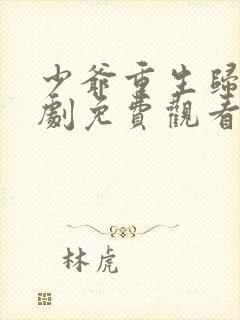 少爺重生歸
劇免費觀看
林虎